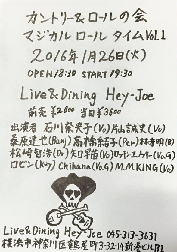 カントリー&ロールの会
マジカル ロール タイム Vol.1
2016年1月26日(火)
OPEN 18:30 START 19:30
Live&Dining Hey-Joe
前売 ¥2800 当日 ¥3800
出演者 石川栄美子(Vo) 片山吉成(Vo)
桑原達也(Ben) 高橋結子(Per)
松崎智浩(Ds) 矢口早苗(Vo)
ロビン(Key) Chihana(Vo.G) M.M.KING(Vo.G)
Live&Dining Hey-Joe 045-313-3631
横浜市神奈川区鶴屋町3-32-14新港ビルB1